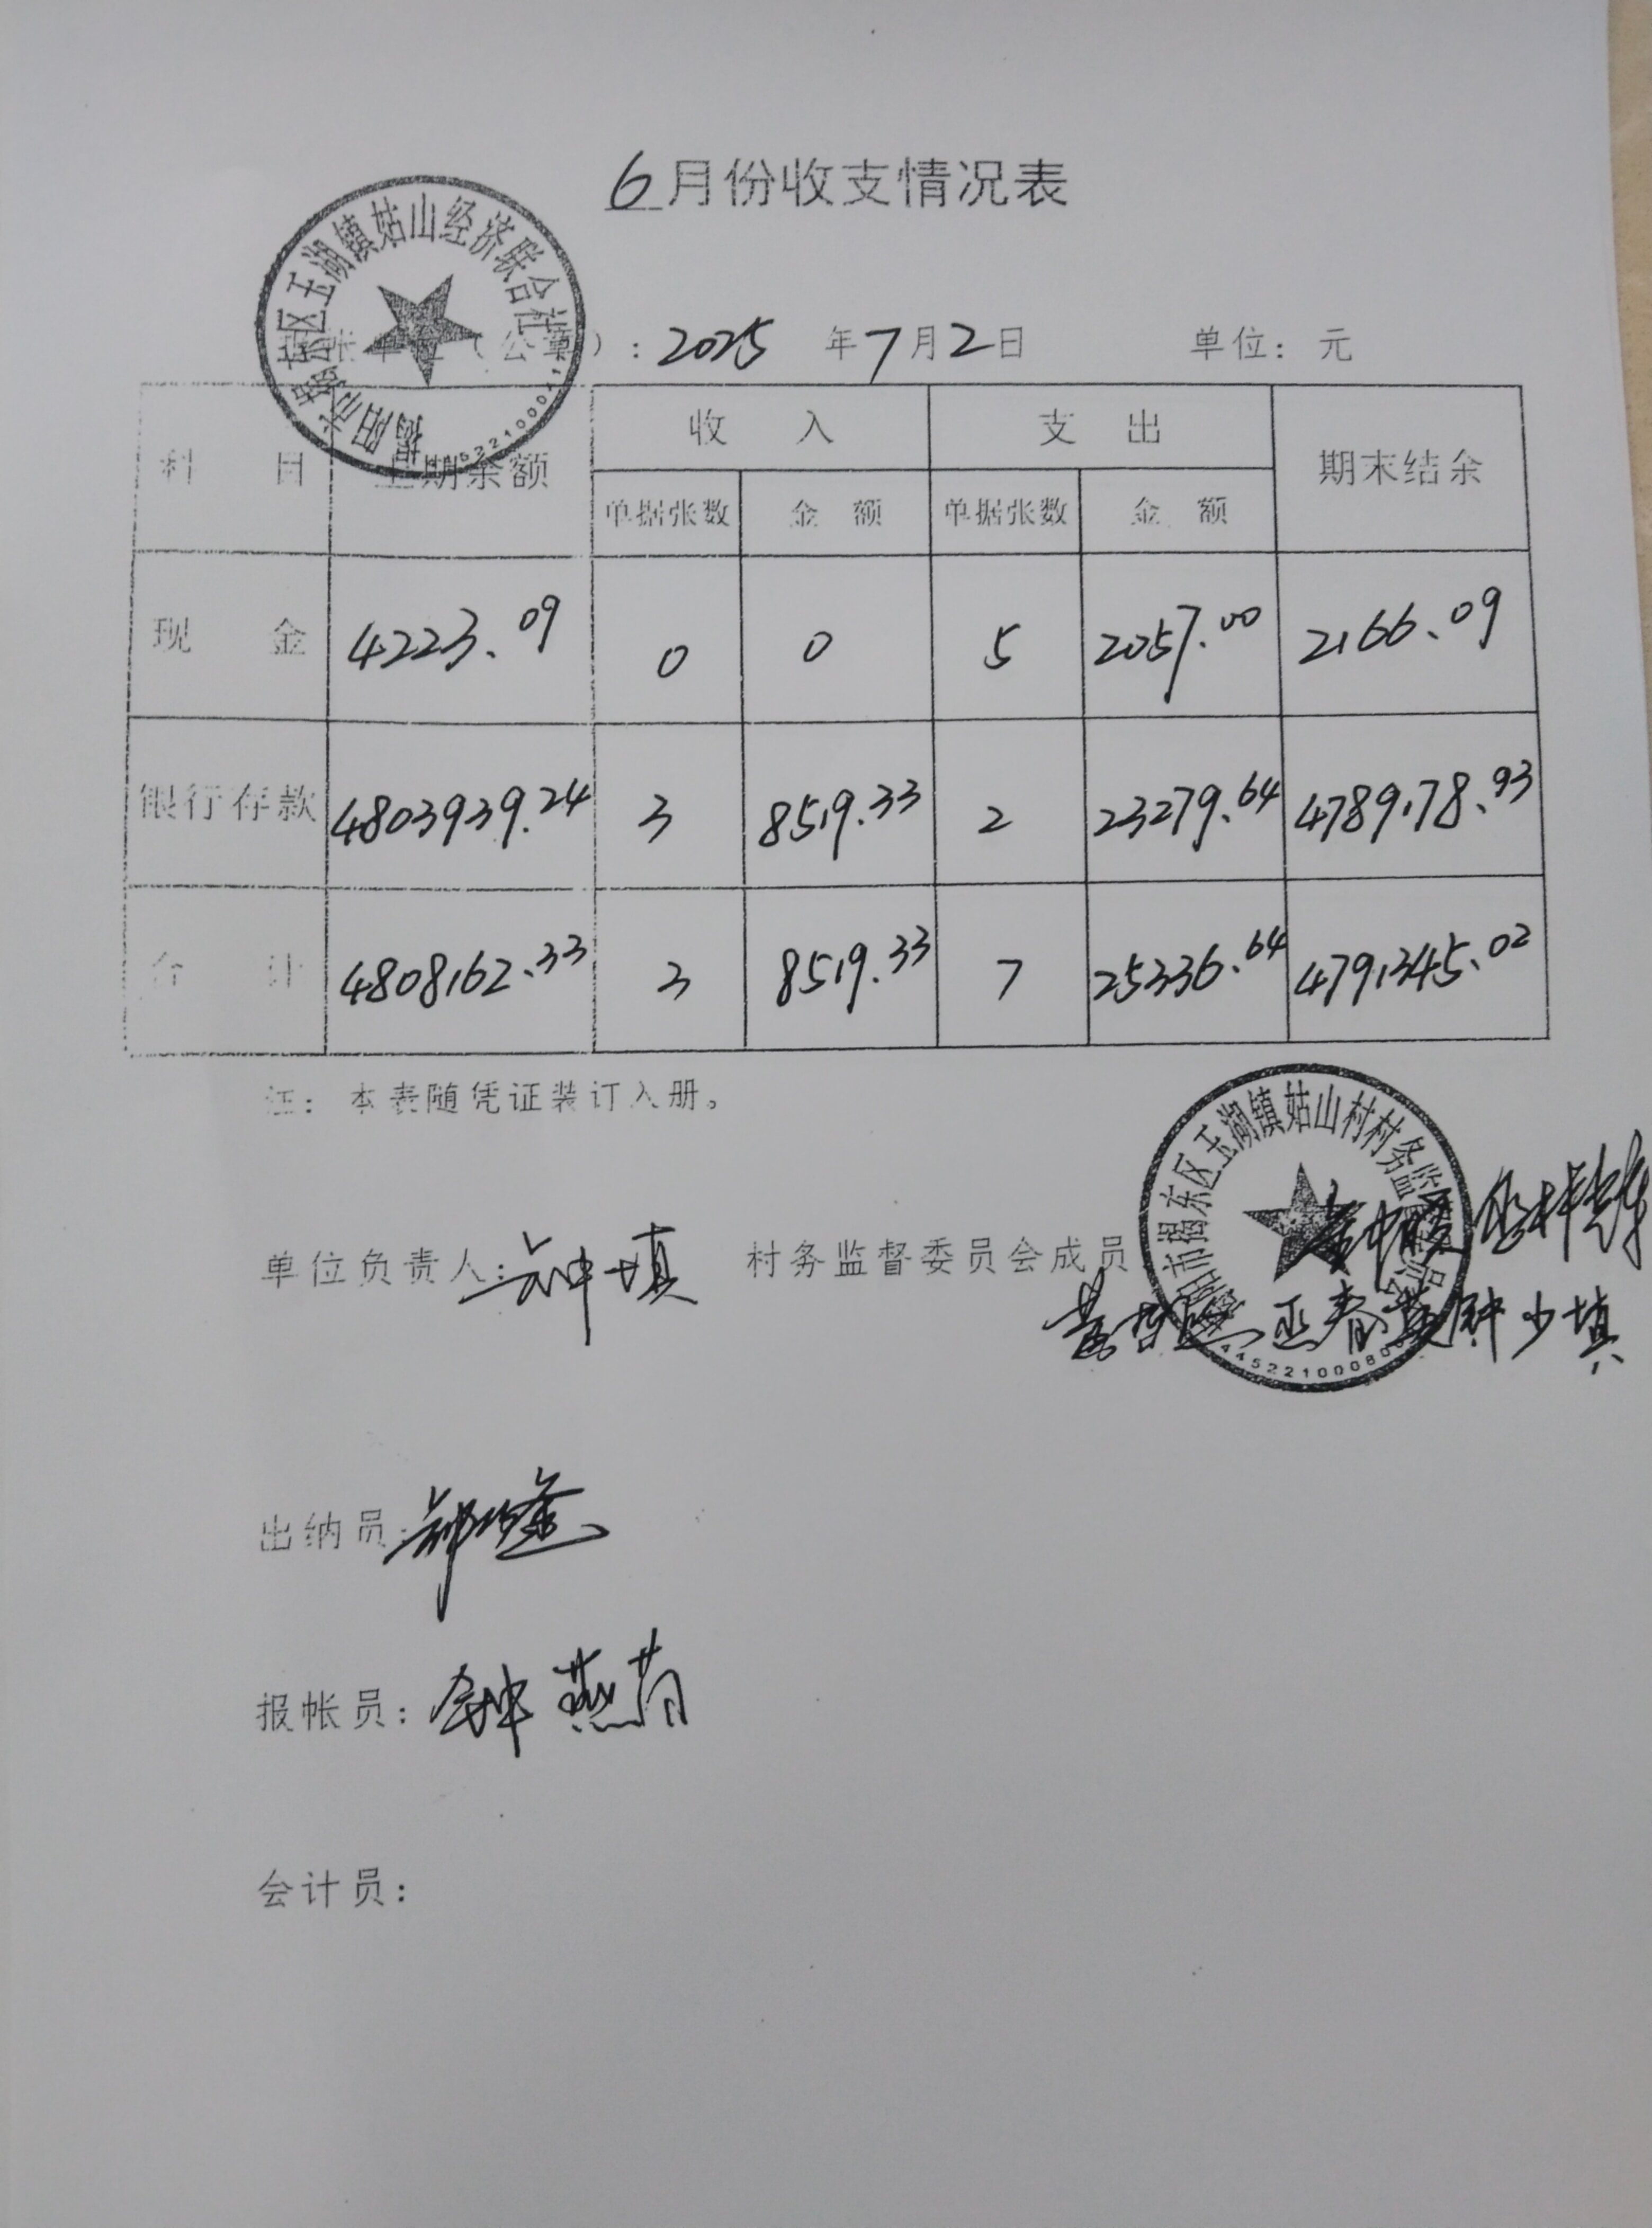 6月份收支情况表
揭阳市揭东区玉湖镇姑山经济联合社
单位（公章）：2025年7月2日 单位：元
科目 上期余额 收入 支出 期末结余
单据张数 金额 单据张数 金额
现金 4223.09 0 0 5 2057.00 2166.09
银行存款 4803939.24 3 8519.33 2 23279.64 4789178.93
合计 4808162.33 3 8519.33 7 25336.64 4791345.02
注：本表随凭证装订入册。
揭东区玉湖镇姑山村村务监
单位负责人： 村务监督委员会成员
钟少填
445221000
出纳员：
报帐员：钟燕
会计员：